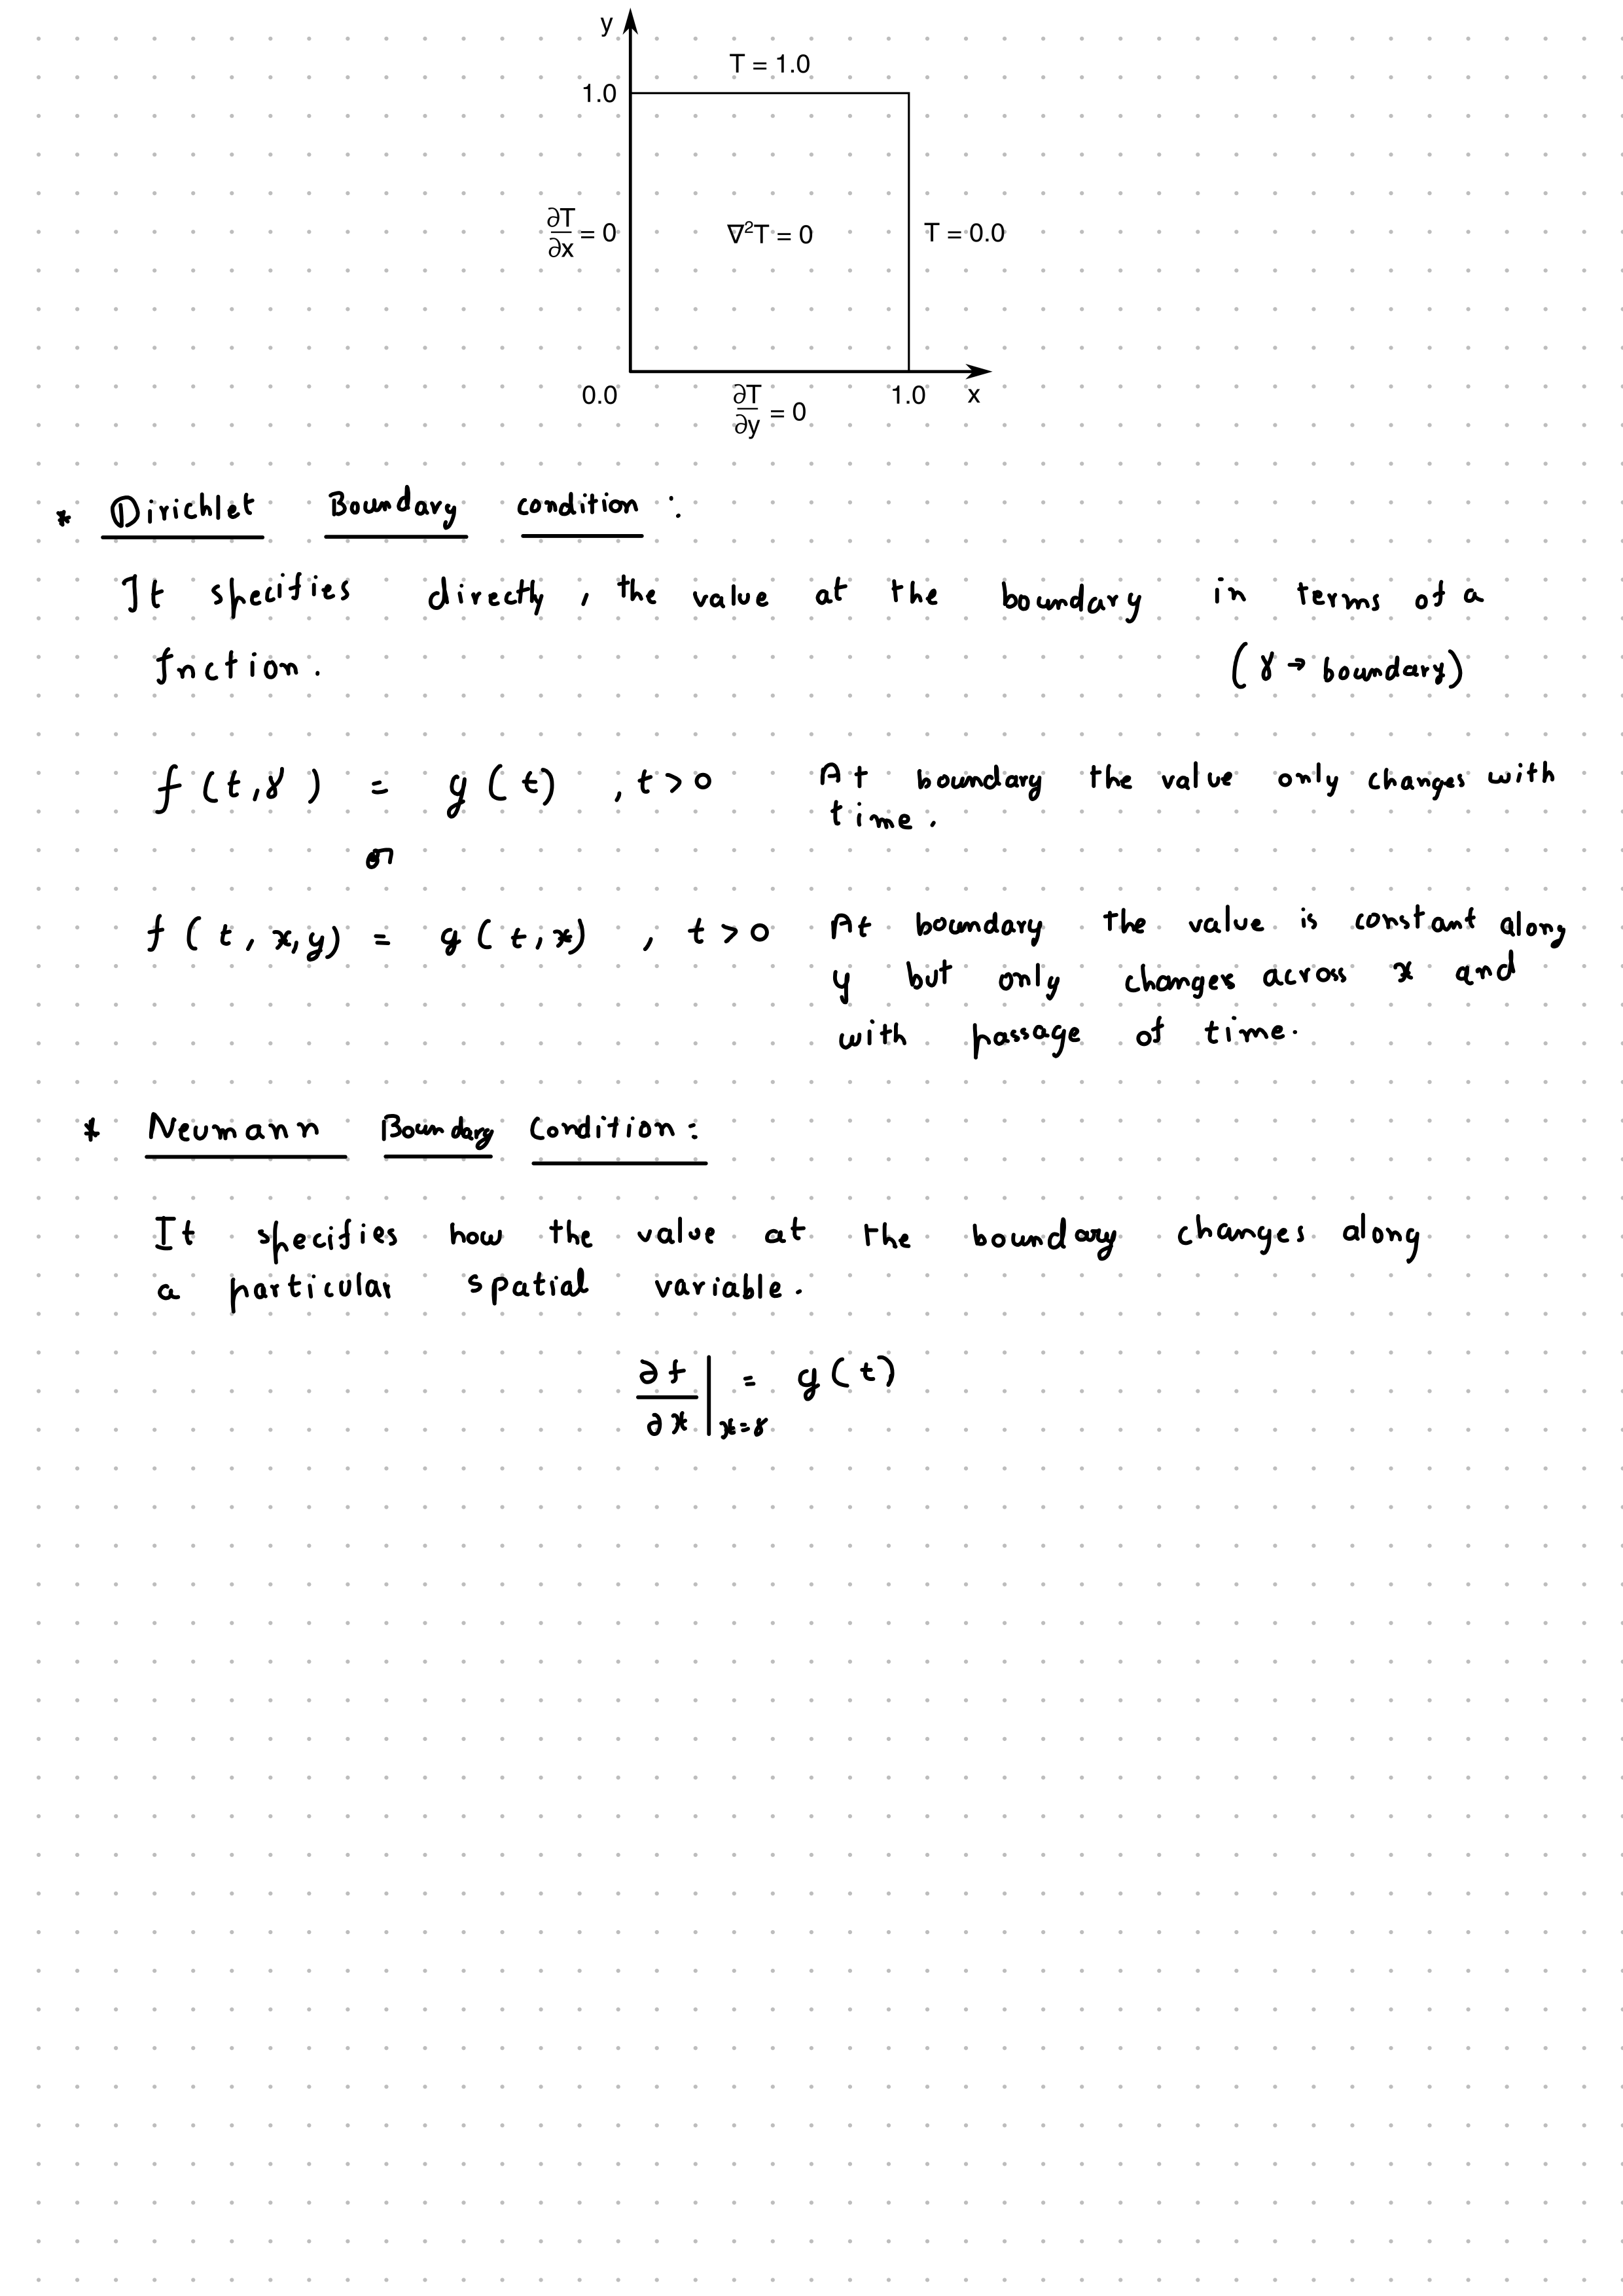 y
T = 1.0
1.0
∂T/∂x = 0
∇²T = 0
T = 0.0
0.0
∂T/∂y = 0
1.0
x
* Dirichlet Boundary condition :
It specifies directly, the value at the boundary in terms of a
fnction.
(γ → boundary)
f (t,γ) = g (t) , t>0
At boundary the value only changes with
time.
or
f (t, x,y) = g (t,x) , t>0
At boundary the value is constant along
y but only changes across x and
with passage of time.
* Neumann Boundary Condition:
It specifies how the value at the boundary changes along
a particular spatial variable.
∂f/∂x |x=γ = g(t)